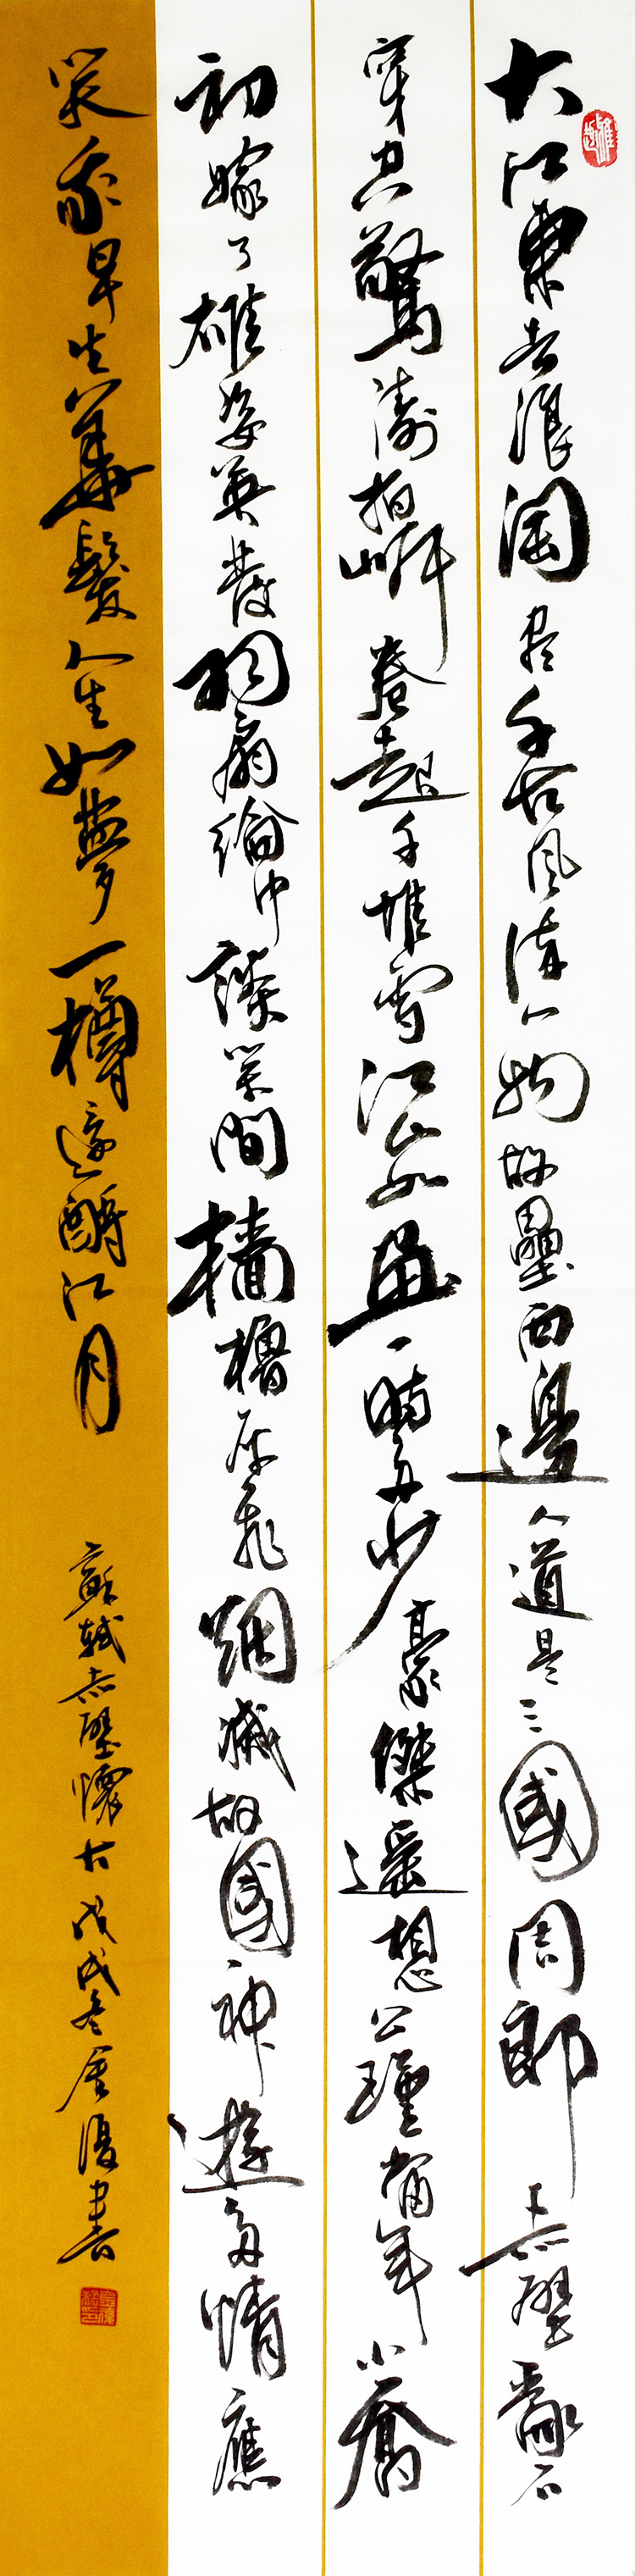 大江東去浪淘盡千古風流人物故壘西邊人道是三國周郎赤壁亂石
穿空驚濤拍岸捲起千堆雪江山如畫一時多少豪傑遙想公瑾當年小喬
初嫁了雄姿英發羽扇綸巾談笑間檣櫓灰飛烟滅故國神遊多情應
笑我早生華髮人生如夢一樽還酹江月
蘇軾赤壁懷古戊戌冬金書